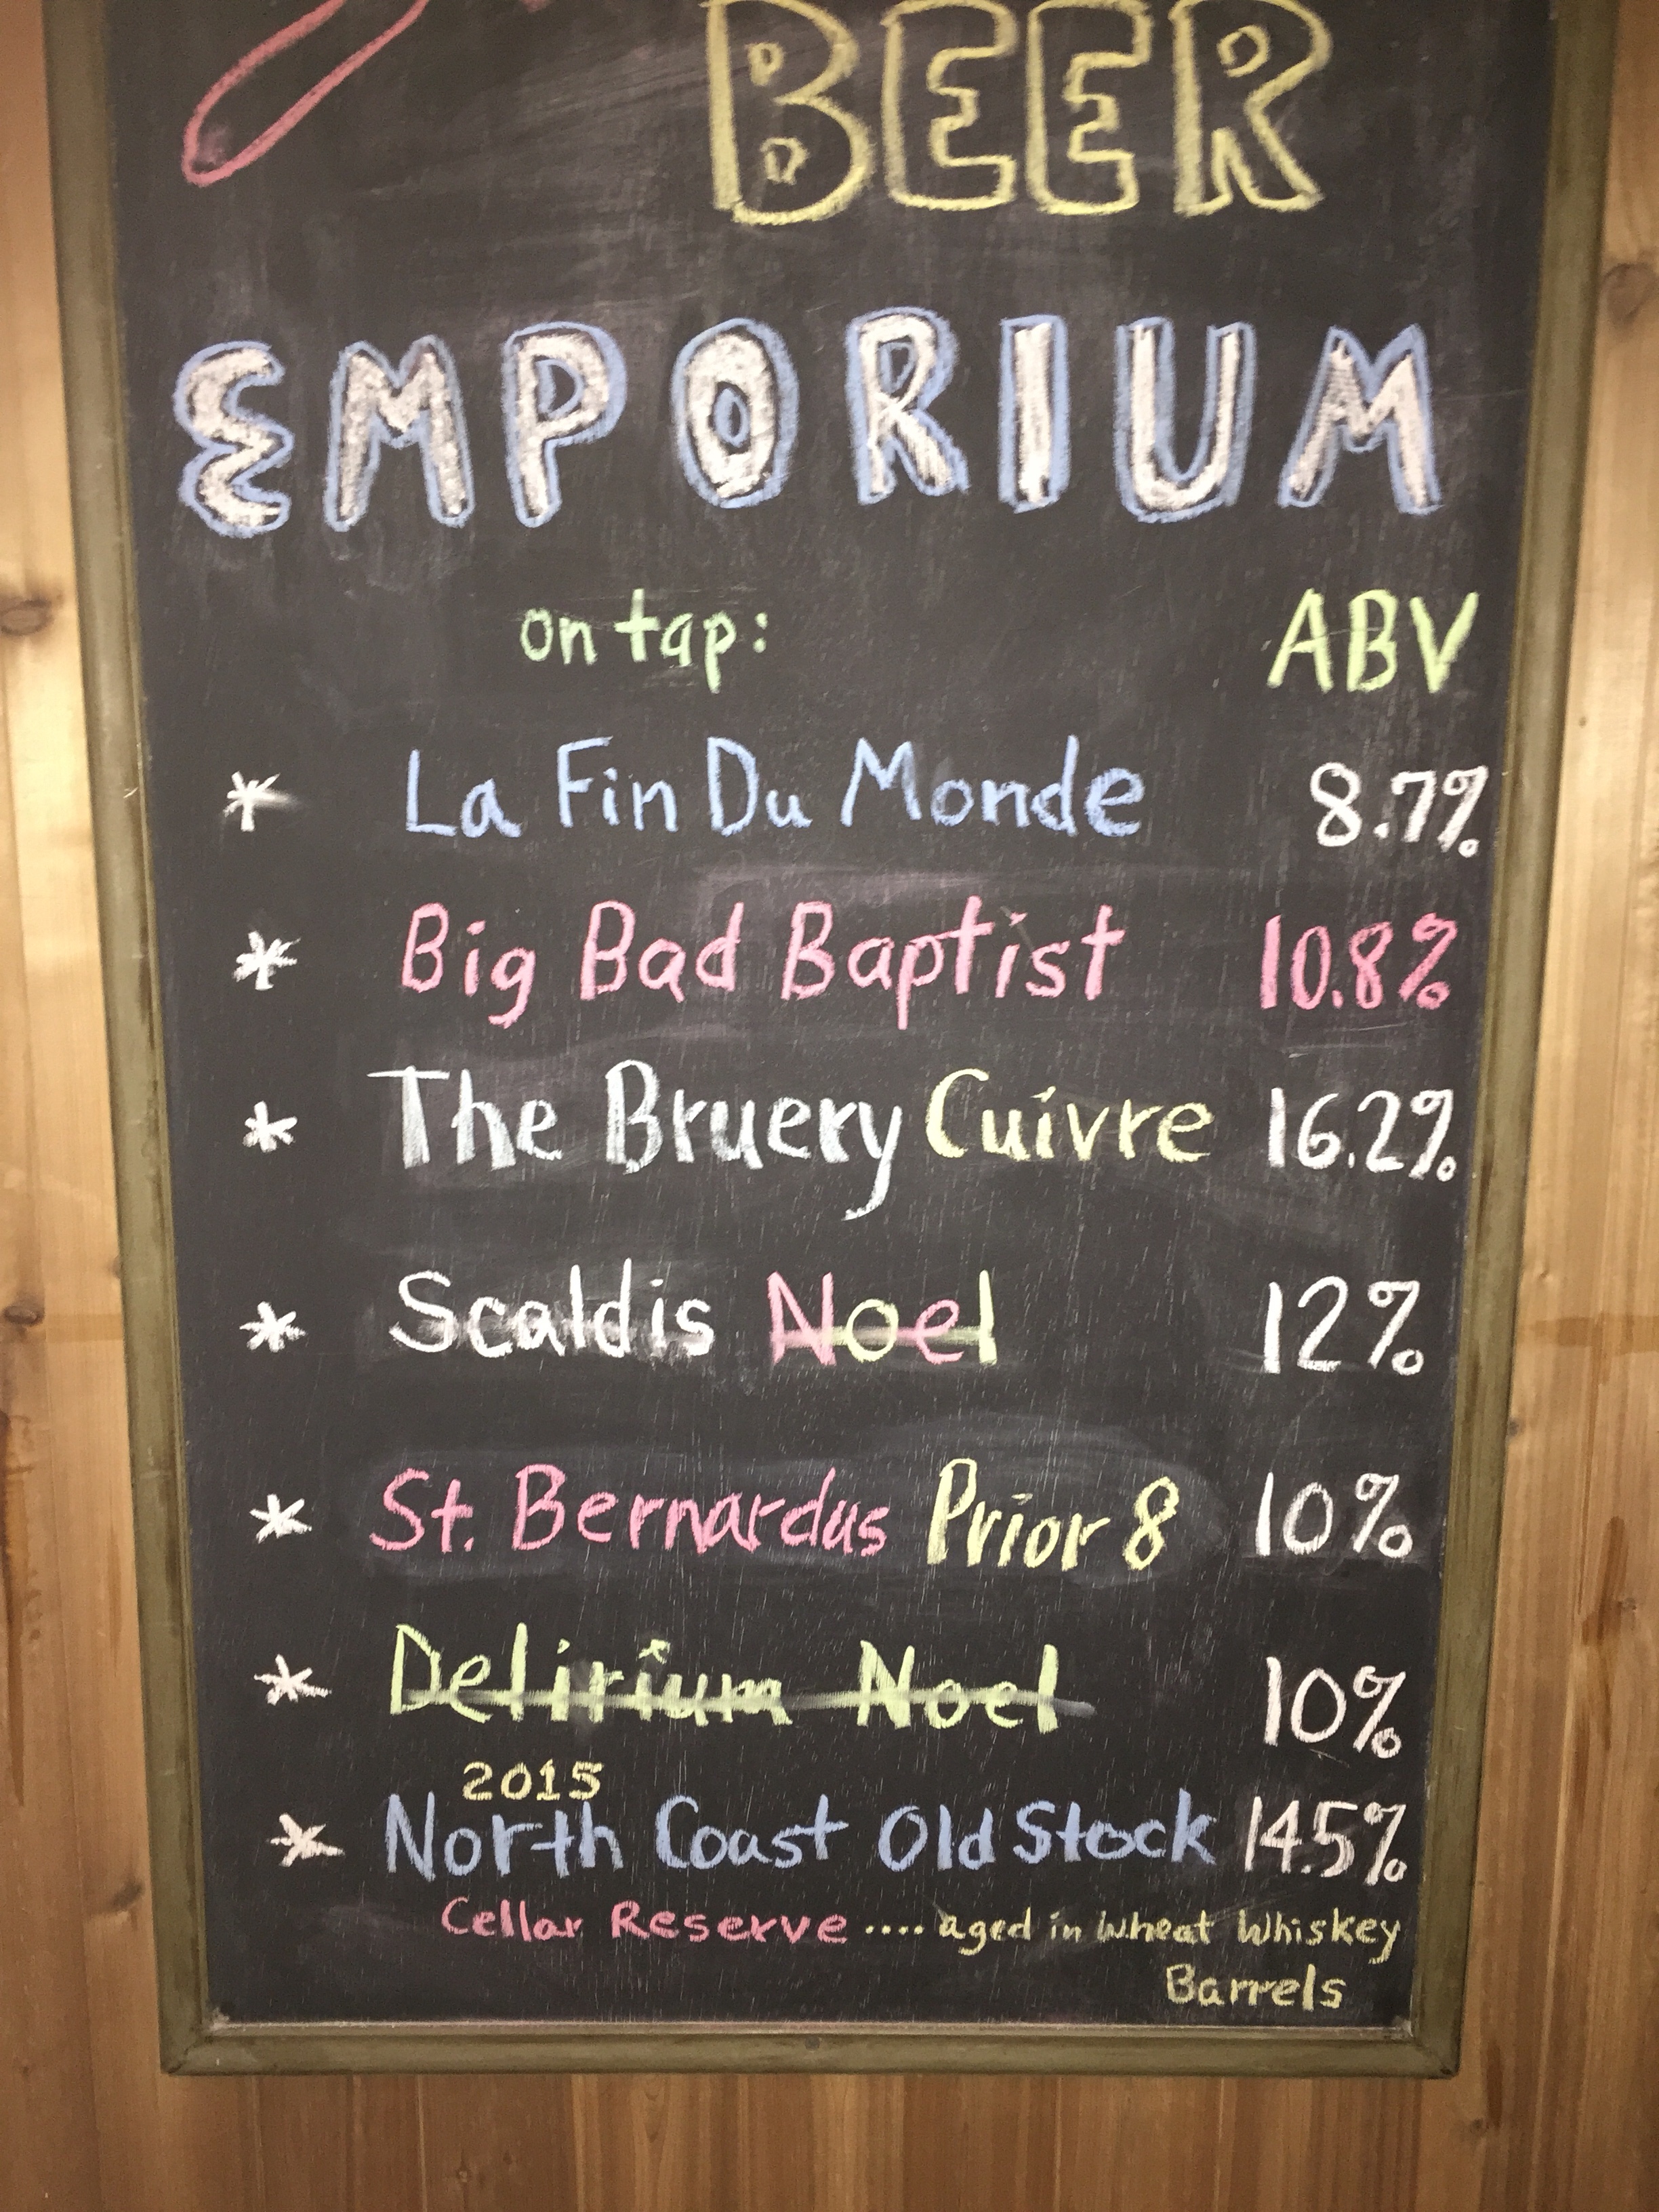 BEER
EMPORIUM
on tap: ABV
* La Fin Du Monde 8.7%
* Big Bad Baptist 10.8%
* The Bruery Cuivre 16.2%
* Scaldis Noel 12%
* St. Bernardus Prior 8 10%
* Delirium Noel 10%
2015
* North Coast Old Stock 14.5%
Cellar Reserve .... aged in Wheat Whiskey
Barrels